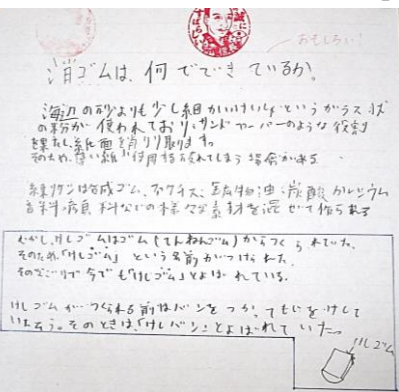 おもしろい!
消ゴムは、何でできているか。
海辺の砂よりも少し細かいけいしゃというガラス状
の粉が使われており、サンドペーパーのような役割
を果たし、紙面を削り取ります。
そのため、薄い紙は使用時破れてしまう場合がある
練りケシは合成ゴム、ファクチス、鉱物油、炭酸カルシウム
香料、顔料などの様々な素材を混ぜて作られる
むかし、けしゴムはゴム(てんねんゴム)からつくられていた。
そのため「けしゴム」という名前がつけられた。
そのなごりで今でも「けしゴム」とよばれている。
けしゴムがつくられる前はパンをつかってもじをけして
いたそう。そのときは、「けしパン」とよばれていた。
けしゴム